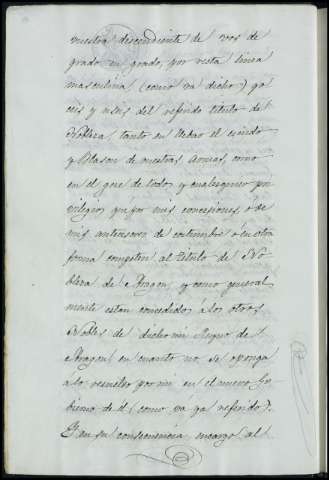 vuestra descendiente de vos de
grado en grado, por recta linea
masculina, (como va dicho) go
ceis y useis del referido titulo de
Nobleza, tanto en llebar el escudo
y Blason de vuestras Armas, como
en el goce de todos, y cualesquier pri
vilegios, que por mis concesiones, o de
mis antecesores de costumbre o en otra
forma competen al titulo de No
bleza de Aragon, y como general
mente estan concedidos á los otros
Nobles de dicho mi Reyno de
Aragon, en cuanto no se oponga
a lo resuelto por mi en el nuevo Go
bierno de él (como vá ya referido).
Y en su consecuencia, encargo, al